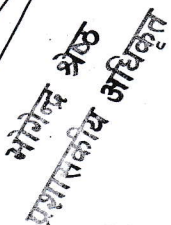 भोगेन्द्र श्रेष्ठ
प्रशासकीय अधिकृत